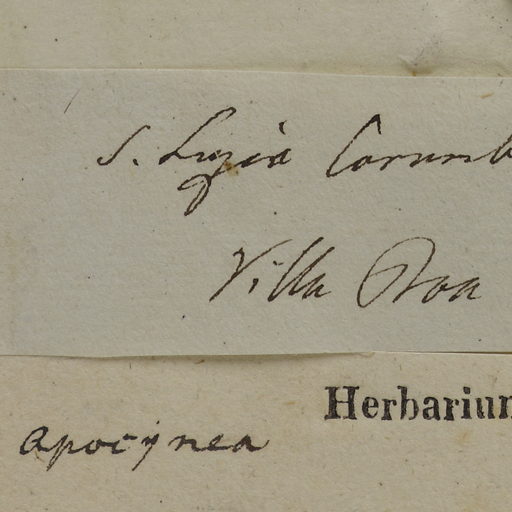 S. Luzia Corumb
Villa Boa
Herbarium
apocynea